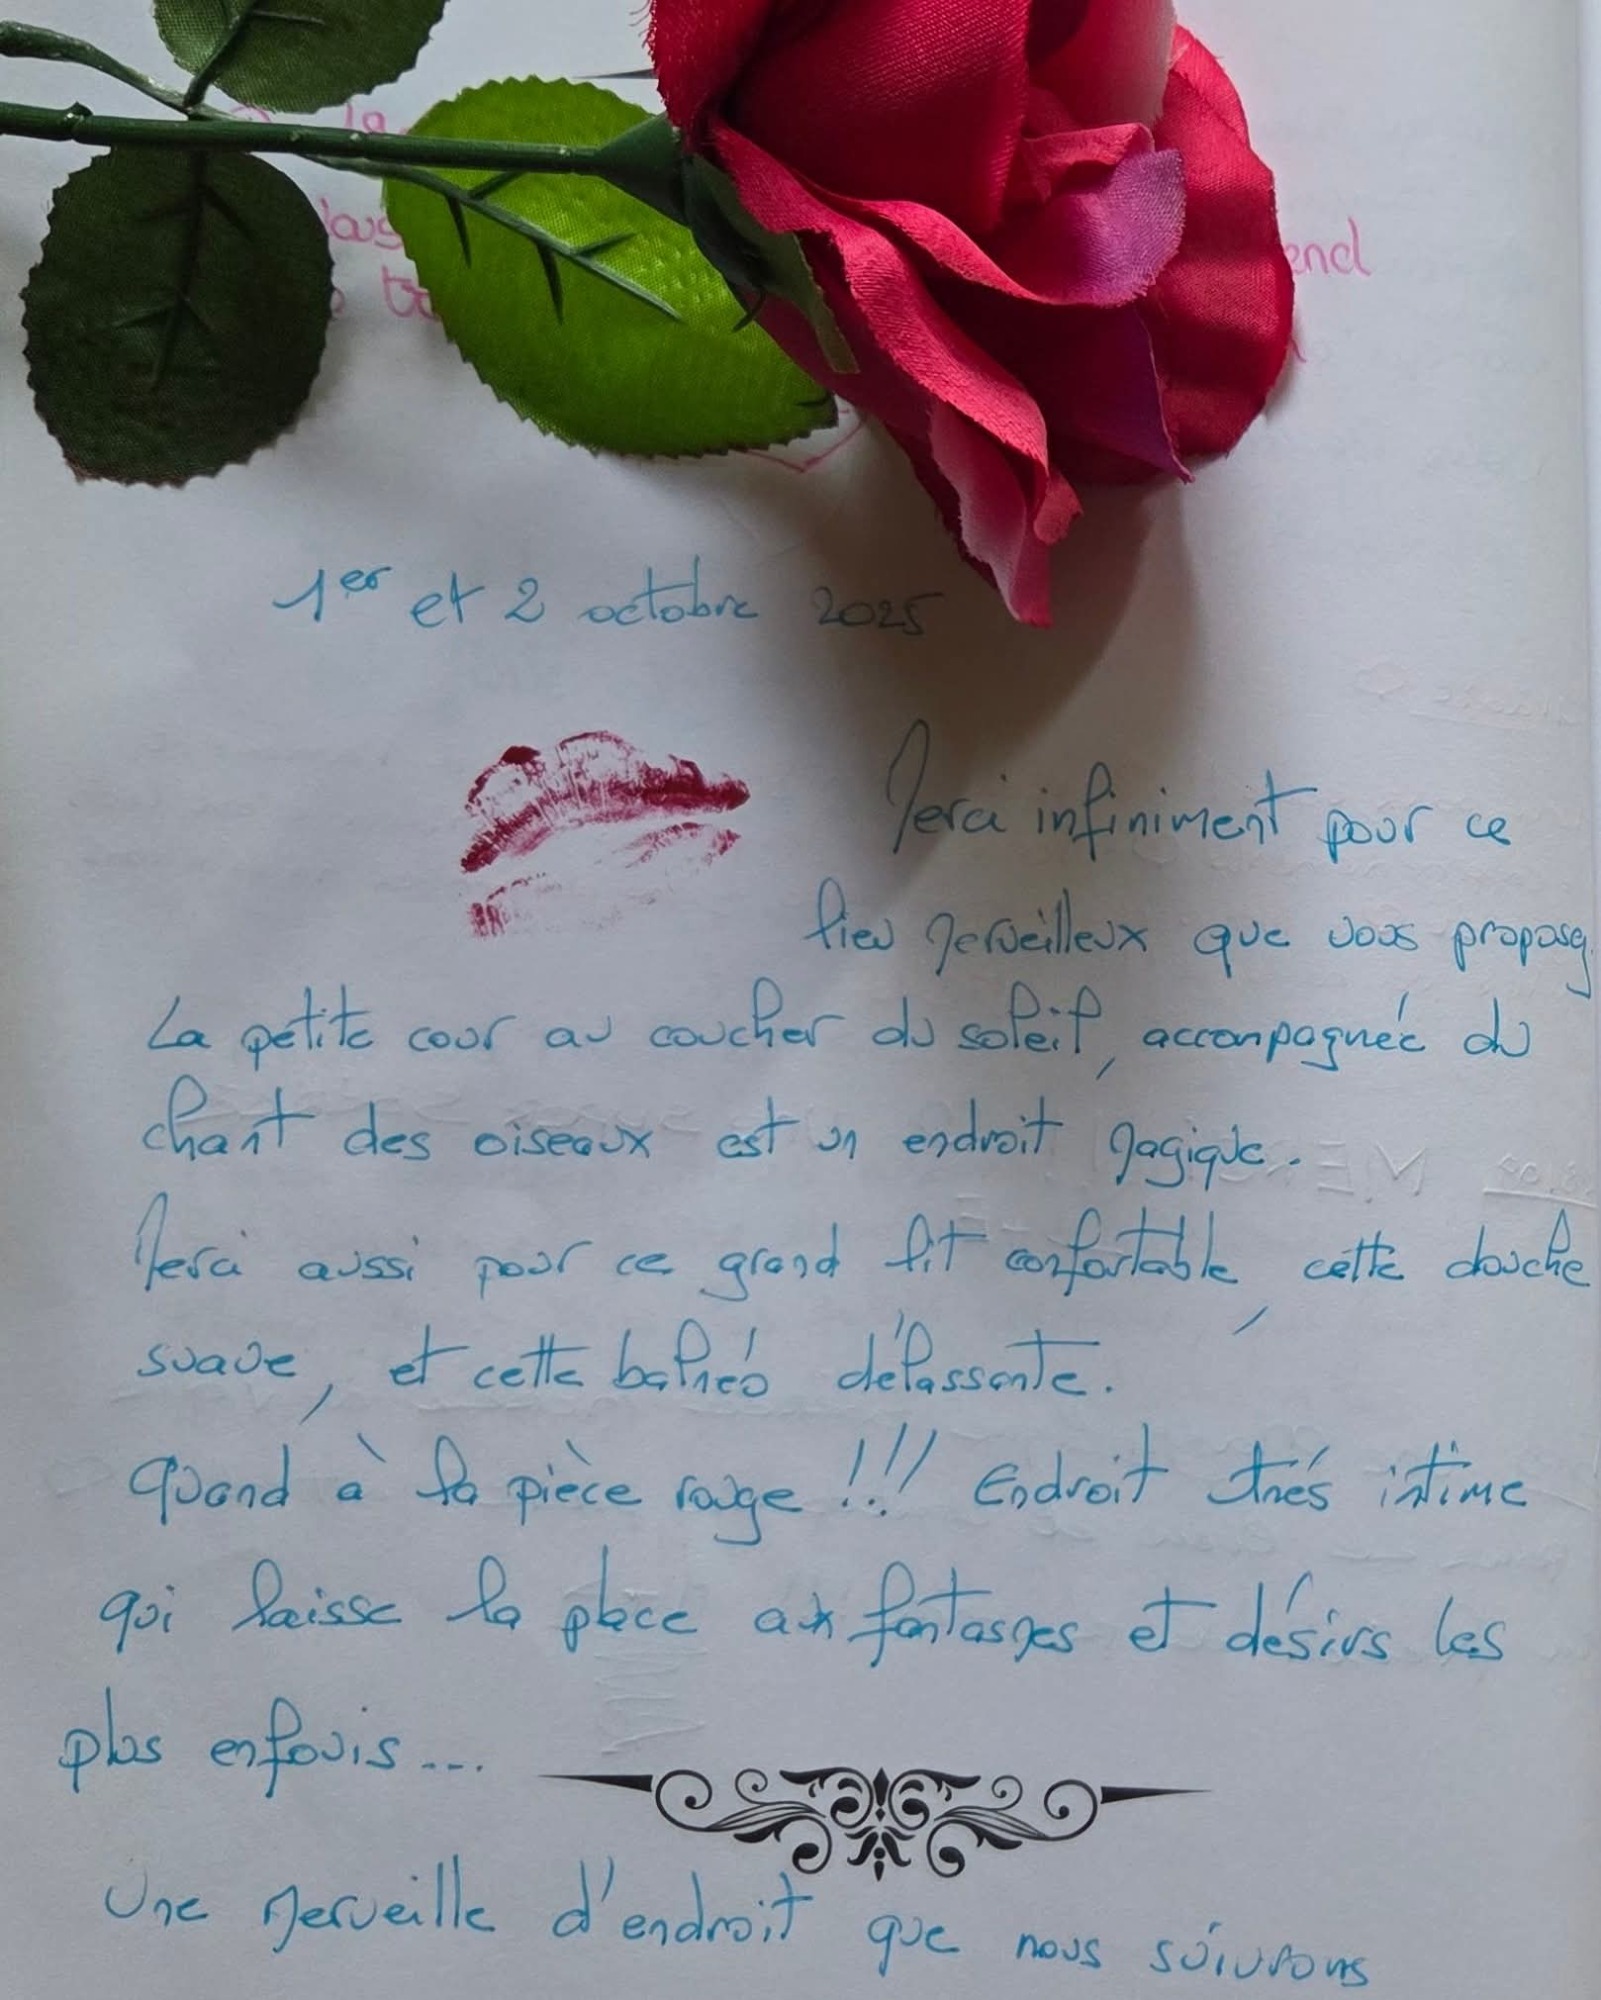 end
1er et 2 octobre 2025
Merci infiniment pour ce
lieu merveilleux que vous proposez.
La petite cour au coucher du soleil, accompagnée du
chant des oiseaux est un endroit magique.
Merci aussi pour ce grand lit confortable, cette douche
suave, et cette balnéo délassante.
Quand à la pièce rouge !!! Endroit très intime
qui laisse la place aux fantasmes et désirs les
plus enfouis...
Une merveille d'endroit que nous suivrons